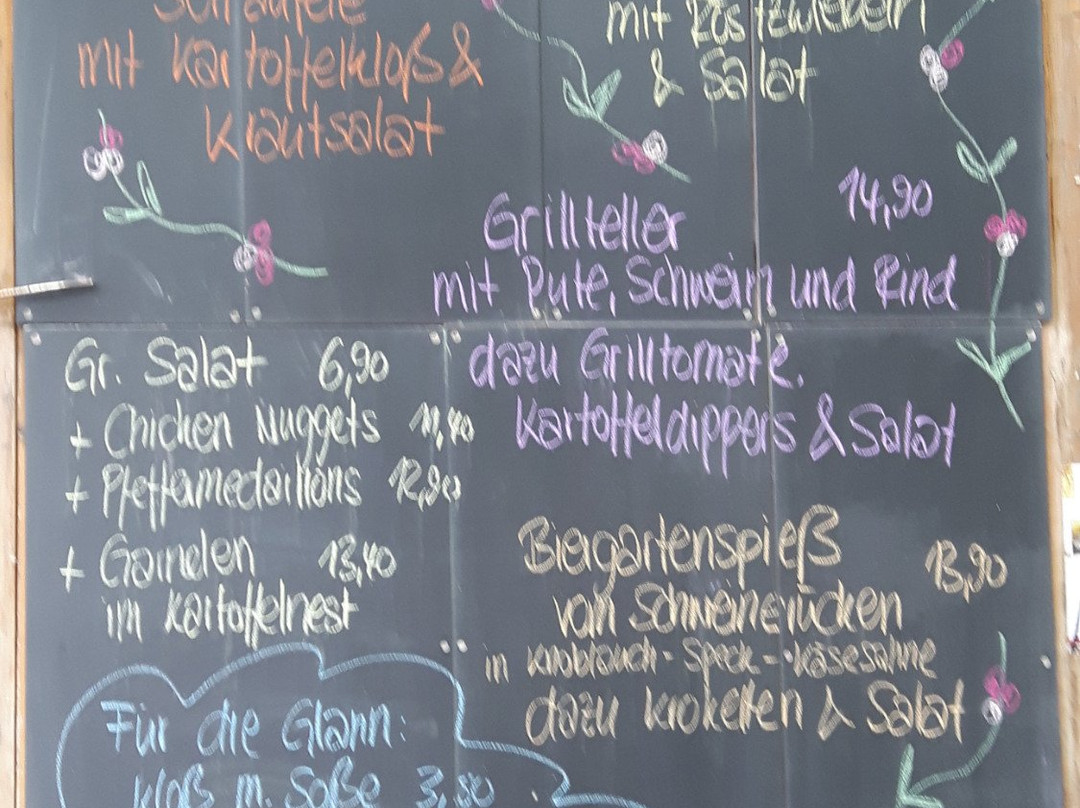 Schäufele
mit Kartoffelkloß &
Krautsalat
mit Röstzwiebeln
& Salat
Grillteller 14,90
mit Pute, Schwein und Rind
dazu Grilltomate,
Kartoffeldippers & Salat
Gr. Salat 6,90
+ Chicken Nuggets 11,40
+ Pfeffermedaillons 12,90
+ Garnelen 13,40
im Kartoffelnest
Biergartenspieß 13,90
vom Schweinerücken
in Knoblauch-Speck-Käsesahne
dazu Kroketten & Salat
Für die Glann:
Kloß m. Soße 3,80